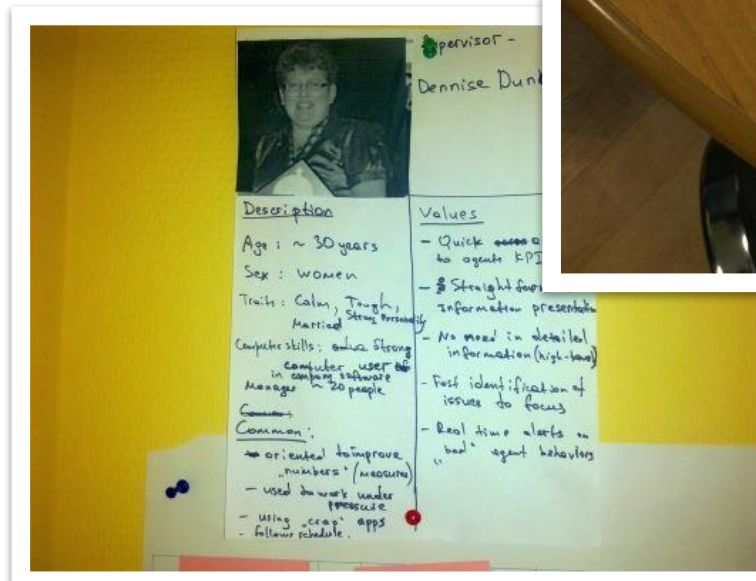 supervisor -
Dennise
Description
Age : ~ 30 years
Sex : women
Traits : Calm, Tough,
Married Strong Personality
Computer skills : Strong
computer user
in company software
Manager ~ 20 people
Common :
- oriented to improve
„numbers“ (measures)
- used to work under
pressure
- using „crap“ apps
- follows schedule.
Values
- Quick
to agents KPI
- Straight
information presentation
- No need in detailed
information (high-level)
- Fast identification of
issues to focus
- Real time alerts on
„bad“ agent behaviors